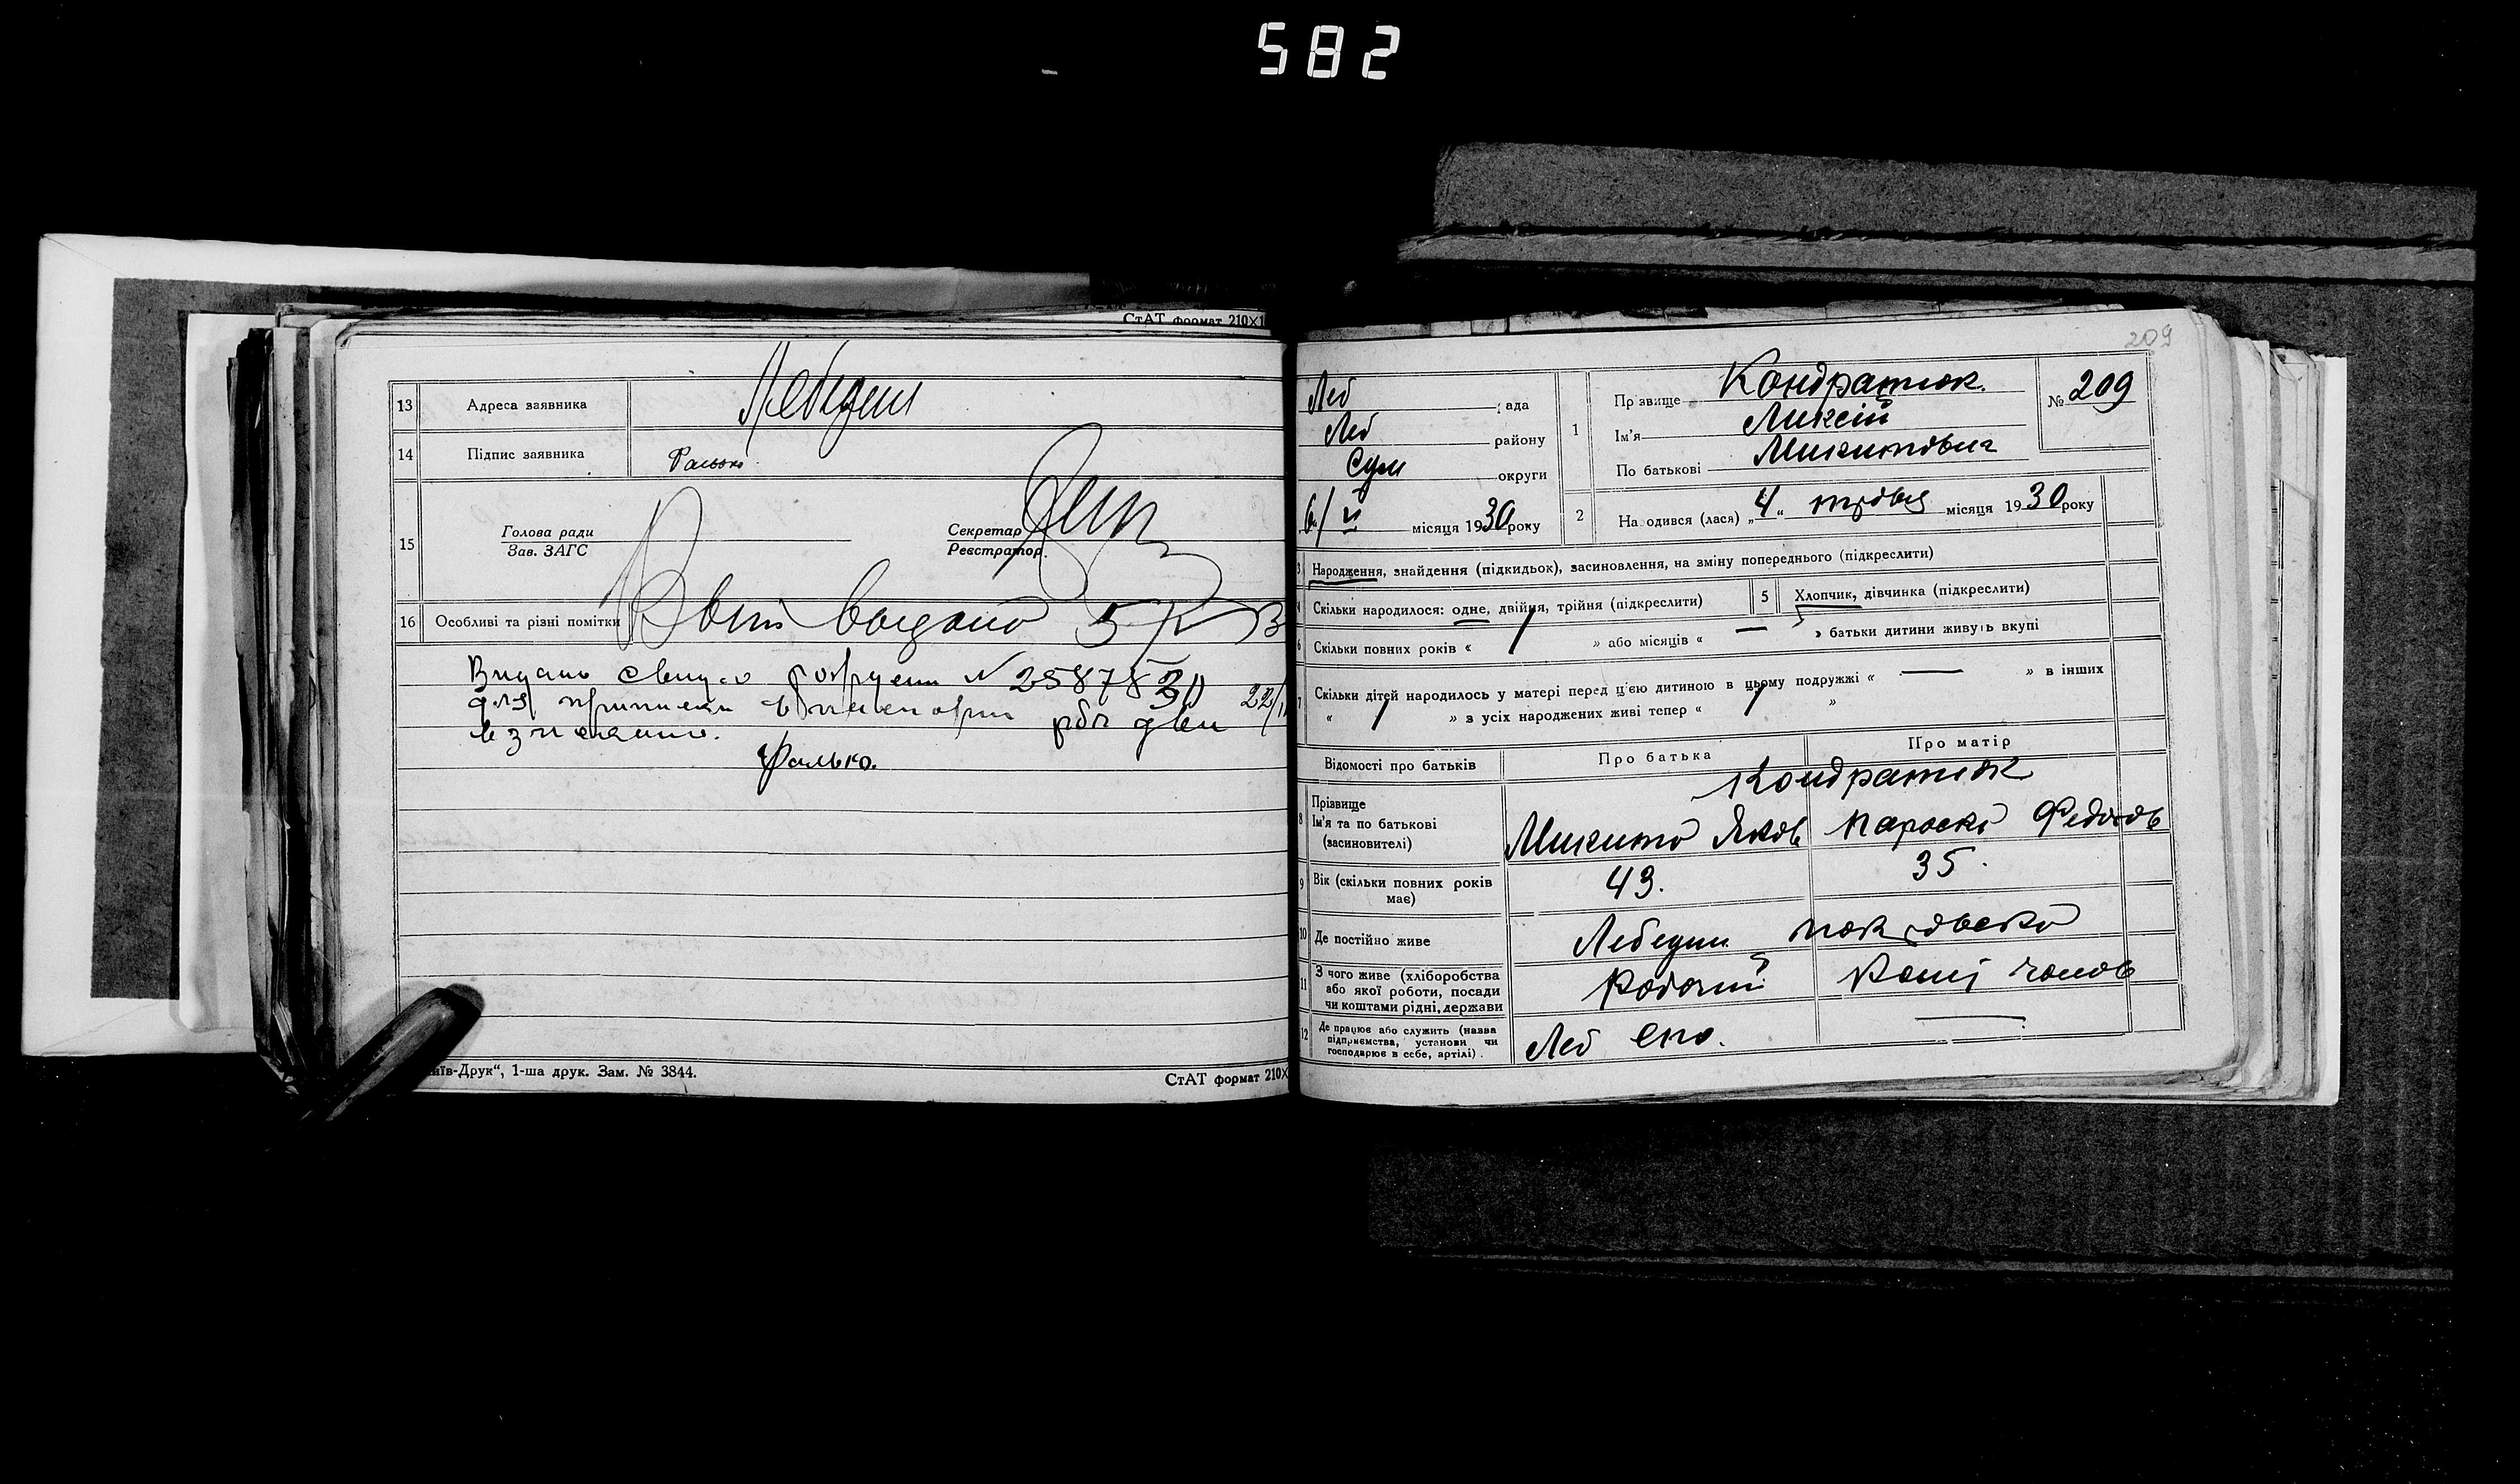 582
СтАТ формат 210×1
13 Адреса заявника Лебедин
14 Підпис заявника Фалько
15 Голова ради
Зав. ЗАГС
Секретар
Реєстратор.
16 Особливі та різні помітки видано 5
Видано № 25878
для
Фалько.
иїв-Друк“, 1-ша друк. Зам. № 3844.
СтАТ формат 210×
209
Леб рада
Леб району
Сум округи
6/ місяця 1930 року
1 Прізвище Кондратюк.
Ім'я Олексій
По батькові Микитович
№ 209
2 Народився (лася) „4“ травня місяця 1930 року
3 Народження, знайдення (підкидьок), засиновлення, на зміну попереднього (підкреслити)
4 Скільки народилося: одне, двійня, трійня (підкреслити)
5 Хлопчик, дівчинка (підкреслити)
6 Скільки повних років « 1 » або місяців « — » батьки дитини живуть вкупі
7 Скільки дітей народилось у матері перед цією дитиною в цьому подружжі « — » в інших
« 1 » з усіх народжених живі тепер « 1 »
Відомості про батьків Про батька Про матір
Кондратюк
8 Прізвище
Ім'я та по батькові
(засиновителі)
Микита Яков Параска Федоров
9 Вік (скільки повних років має) 43. 35.
10 Де постійно живе Лебедин
11 З чого живе (хліборобства
або якої роботи, посади
чи коштами рідні, держави
Робочий Кошт чолов
12 Де працює або служить (назва
підприємства, установи чи
господарює в себе, артілі).
Леб —